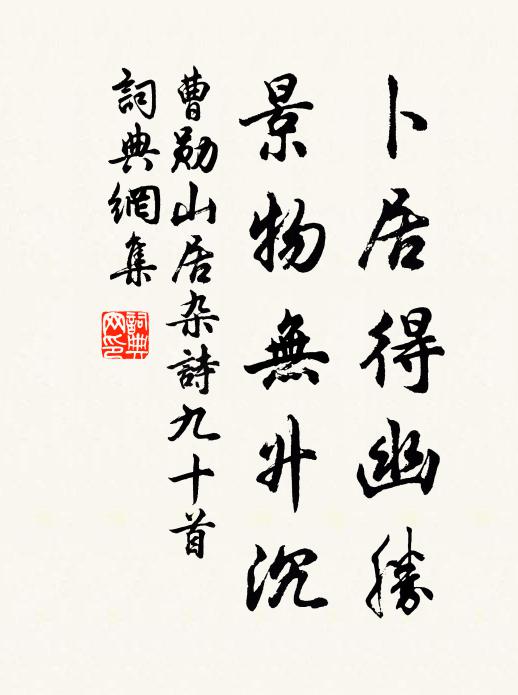 卜居得幽勝
景物無升沉
曹勛山居杂詩九十首
詞典網集
詞典網印